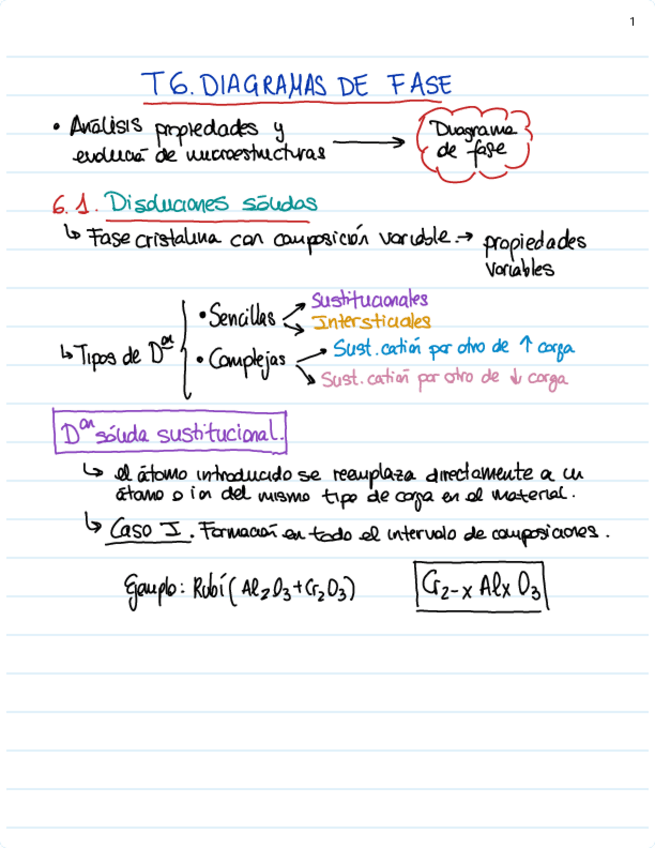 1
T6. DIAGRAMAS DE FASE
• Análisis propiedades y
evolución de microestructuras → Diagrama
de fase
6.1. Disoluciones sólidas
↳ Fase cristalina con composición variable. → propiedades
variables
↳ Tipos de Dᵒⁿ
• Sencillas
Sustitucionales
Intersticiales
• Complejas
Sust. catión por otro de ↑ carga
Sust. catión por otro de ↓ carga
Dᵒⁿ sólida sustitucional.
↳ el átomo introducido se reemplaza directamente a un
átomo o ion del mismo tipo de carga en el material.
↳ Caso I. Formación en todo el intervalo de composiciones.
Ejemplo: Rubí (Al₂O₃ + Cr₂O₃) Cr₂₋ₓ Alₓ O₃